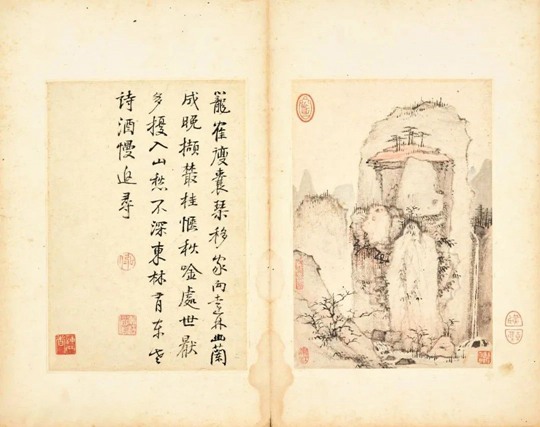 籠寉復囊琴移家向遠林幽蘭
成晚擷叢桂愜秋唫處世厭
多擾入山愁不深東林有东老
詩酒慢追尋